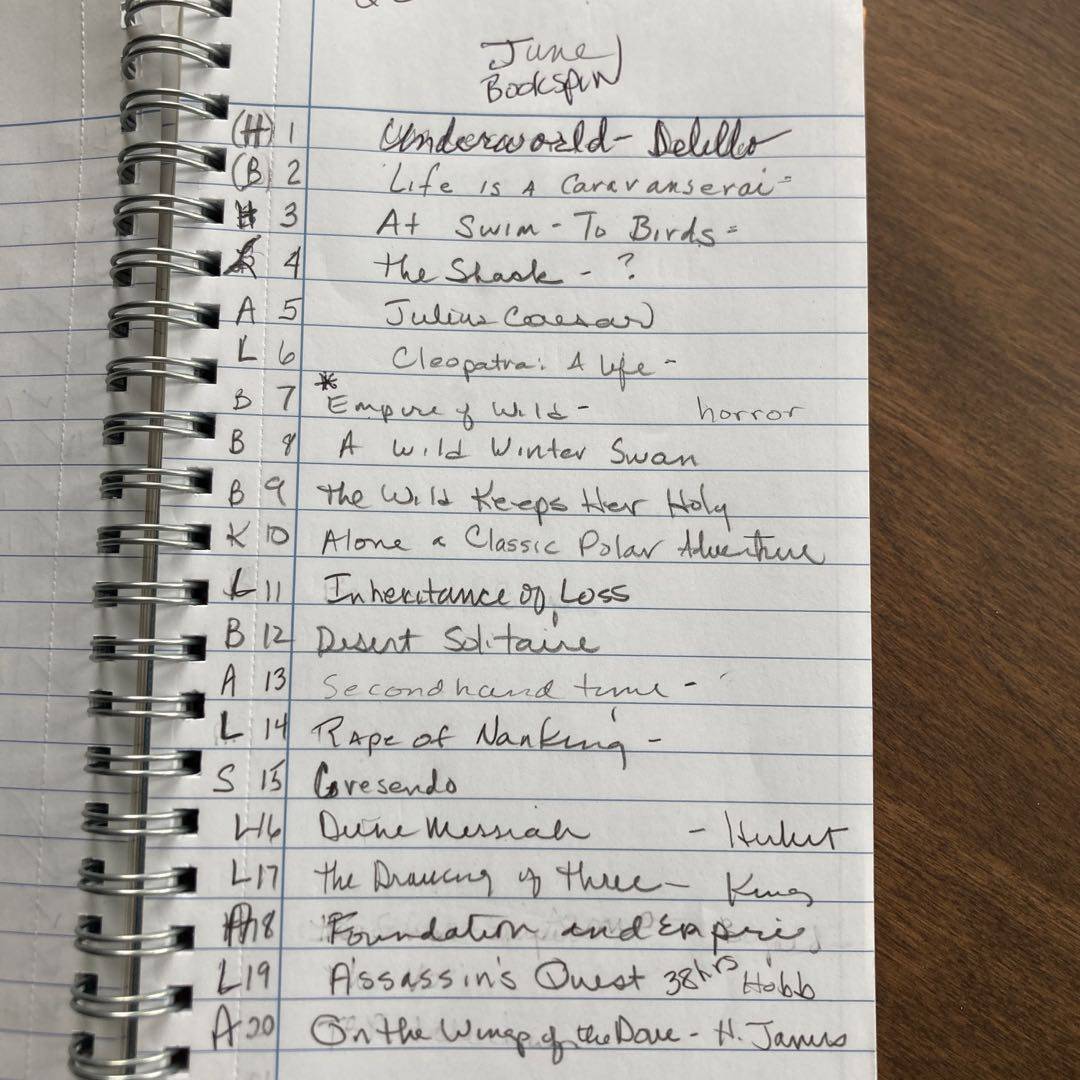 June
Bookspin
(H) 1 Underworld - Delillo
(B) 2 Life is a Caravanserai -
H 3 At Swim - To Birds =
4 the Shack - ?
A 5 Julius Caesar
L 6 Cleopatra: A life -
B 7 * Empire of Wild - horror
B 8 A Wild Winter Swan
B 9 the Wild Keeps Her Holy
K 10 Alone a Classic Polar Adventure
L 11 Inheritance of Loss
B 12 Desert Solitaire
A 13 Secondhand time -
L 14 Rape of Nanking -
S 15 Cresendo
L 16 Dune Messiah - Herbert
L 17 the Drawing of three - King
A 18 Foundation and Empire
L 19 Assassin's Quest 38hrs Hobb
A 20 On the Wings of the Dove - H. James